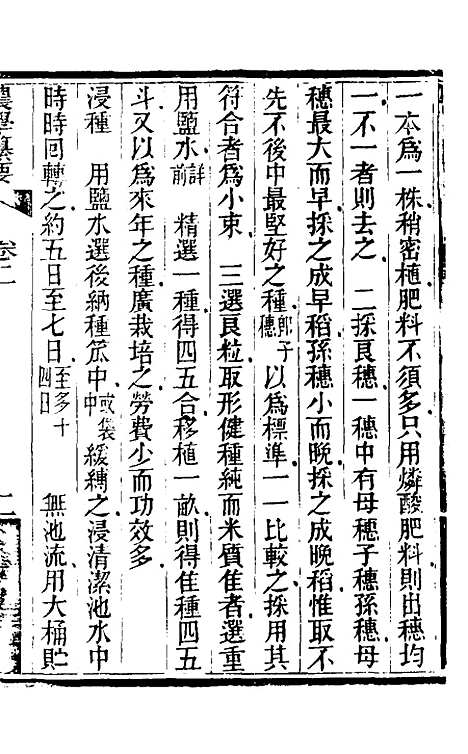 一本爲一株稍密植肥料不須多只用燐酸肥料則出穗均
一不一者則去之　二採良穗一穗中有母穗子穗孫穗母
穗最大而早採之成早稻孫穗小而晚採之成晚稻惟取不
先不後中最堅好之種卽子穗以爲標準一一比較之採用其
符合者爲小束　三選良粒取形健種純而米質佳者選重
用鹽水詳前　精選一種得四五合移植一畝則得佳種四五
斗又以爲來年之種廣栽培之勞費少而功效多
浸種　用鹽水選後納種笟中或袋中緩縛之浸清潔池水中
時時回轉之約五日至七日至多十四日　無池流用大桶貯
農學纂要　卷二